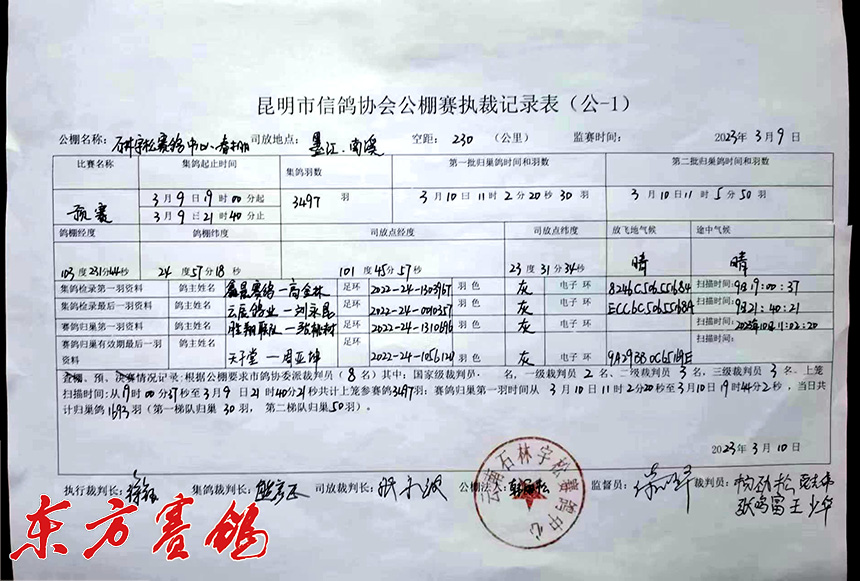 昆明市信鸽协会公棚赛执裁记录表（公-1）
公棚名称： 石林宇松赛鸽中心·春棚 司放地点： 墨江·南溪 空距： 230 （公里） 监赛时间： 2023年 3月 9日
比赛名称 集鸽起止时间 集鸽羽数 第一批归巢鸽时间和羽数 第二批归巢鸽时间和羽数
预赛 3月 9日 19时 00分起 3497 羽 3月 10日 11时 2分 20秒 30羽 3月 10日 11时 5分 50羽
3月 9日 21时 40分止
鸽棚经度 鸽棚纬度 司放点经度 司放点纬度 放飞地气候 途中气候
103度 23分 44秒 24度 57分 18秒 101度 45分 57秒 23度 31分 34秒 晴 晴
集鸽检录第一羽资料 鸽主姓名 鑫晟赛鸽—高金林 足环 2022-24-1303967 羽色 灰 电子环 8246C50655B684 扫描时间： 9日19:00:37
集鸽检录最后一羽资料 鸽主姓名 云辰鸽业—刘永昆 足环 2022-24-0010357 羽色 灰 电子环 ECCBC50655B8A 扫描时间： 9日21:40:21
赛鸽归巢第一羽资料 鸽主姓名 胜翔联队— 足环 2022-24-1310696 羽色 灰 电子环 扫描时间： 10日11:02:20
赛鸽归巢有效期最后一羽资料 鸽主姓名 天子堂—周亚坤 足环 2022-24-1056121 羽色 灰 电子环 扫描时间：
查棚、预、决赛情况记录：根据公棚要求市鸽协委派裁判员（ 8名）其中：国家级裁判员、 名，一级裁判员 2名、二级裁判员 3名，三级裁判员 3名。上笼
扫描时间：从19时00分37秒至3月 9日 21时40分21秒共计上笼参赛鸽3497羽；赛鸽归巢第一羽时间从 3月10日11时 2分20秒至3月10日19时44分2秒，当日共
计归巢鸽1693羽（第一梯队归巢 30羽， 第二梯队归巢50羽）。
2023年 3月 10日
执行裁判长： 集鸽裁判长： 司放裁判长： 公棚法人： 监督员： 裁判员：
王少华
云南石林宇松赛鸽中心
东方赛鸽